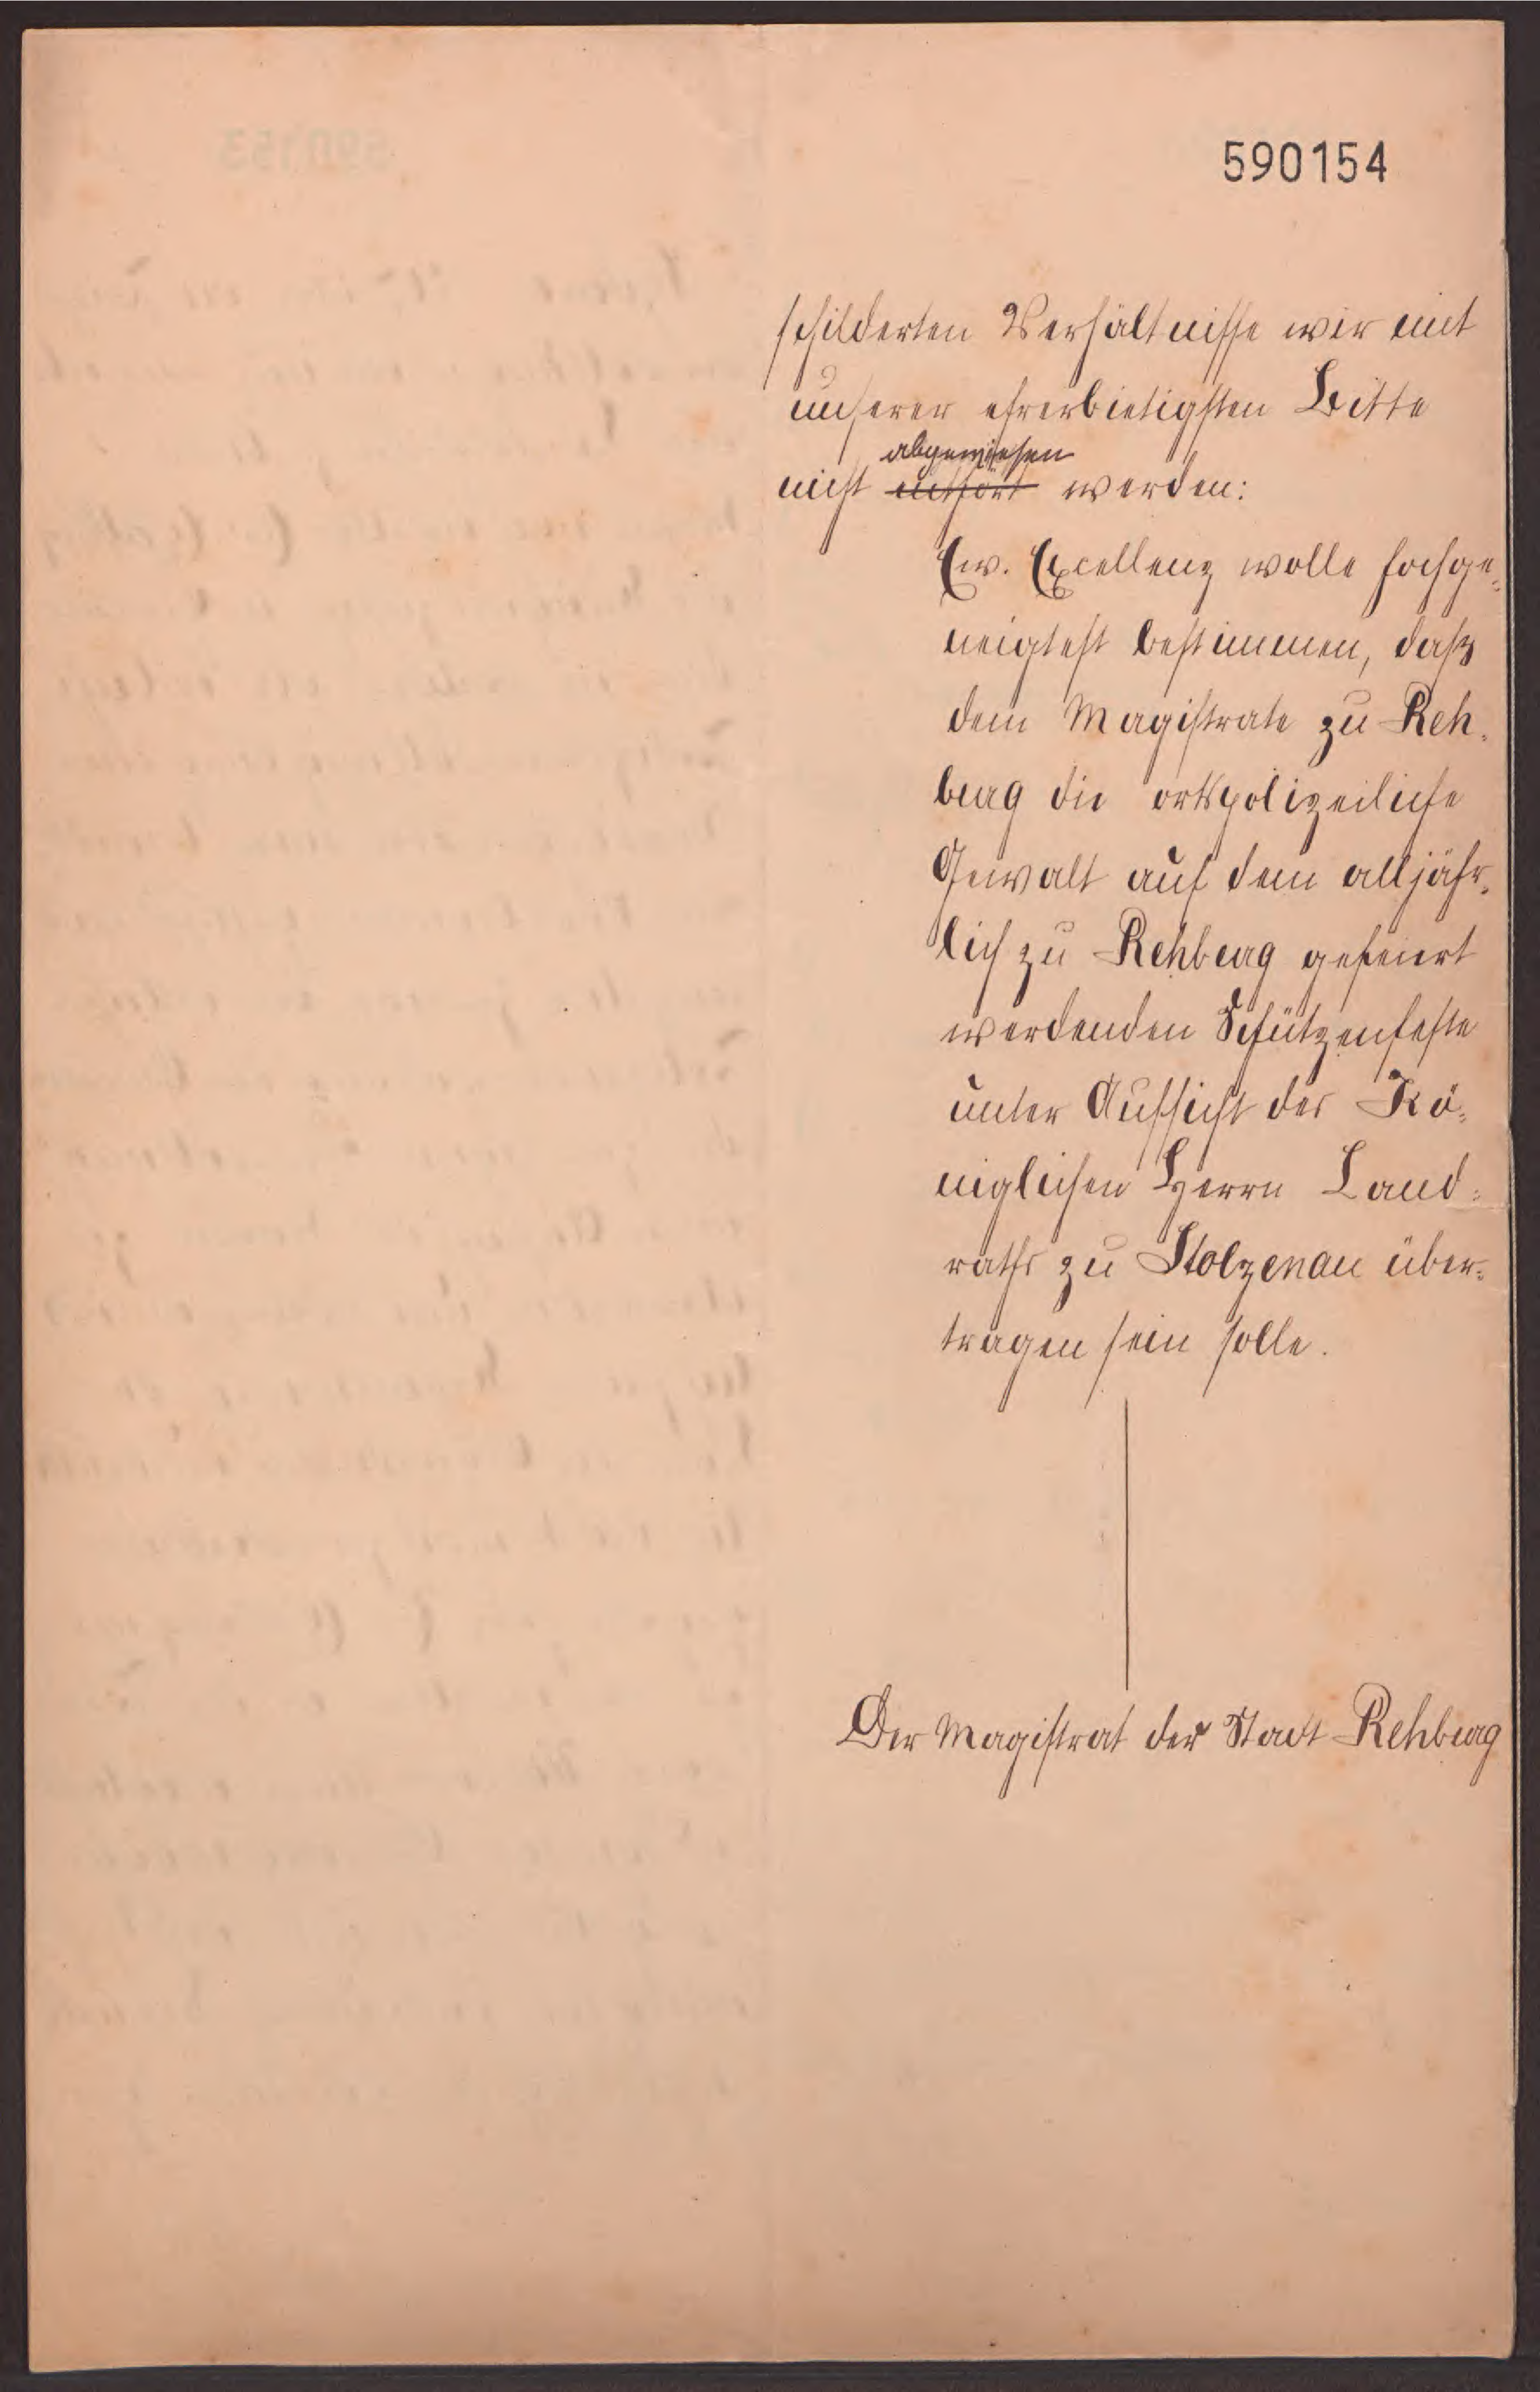 590154
schilderten Verhältnisse wir mit
unserer ehrerbietigsten Bitte
abgewiesen
nicht werden:
Ew. Excellenz wolle hochge-
neigtest bestimmen, daß
dem Magistrate zu Reh-
burg die ortspolizeiliche
Gewalt auf dem alljähr-
lich zu Rehburg gefeiert
werdenden Schützenfeste
unter Aufsicht des Kö-
niglichen Herrn Land-
raths zu Stolzenau über-
tragen sein solle.
Der Magistrat der Stadt Rehburg